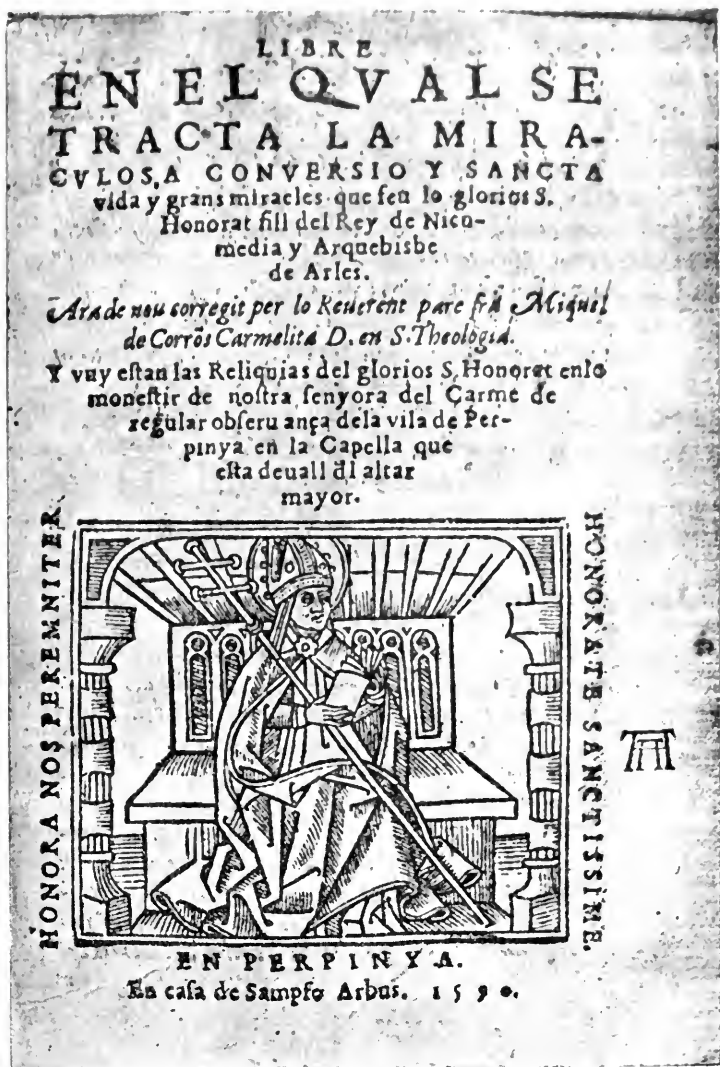 LIBRE
EN EL QVAL SE
TRACTA LA MIRA-
CVLOSA CONVERSIO Y SANCTA
vida y grans miracles que feu lo glorios S.
Honorat fill del Rey de Nico-
media y Arquebisbe
de Arles.
Ara de nou corregit per lo Reuerent pare fra Miquel
de Corrõs Carmelita D. en S. Theologia.
Y vuy eſtan las Reliquias del glorios S. Honorat enlo
moneſtir de noſtra ſenyora del Carme de
regular obſeru ança dela vila de Per-
pinya en la Capella que
eſta deuall dl altar
mayor.
HONORA NOS PEREMNITER
HONORATE SANCTISSIME.
EN PERPINYA.
En caſa de Sampſo Arbus. 1590.